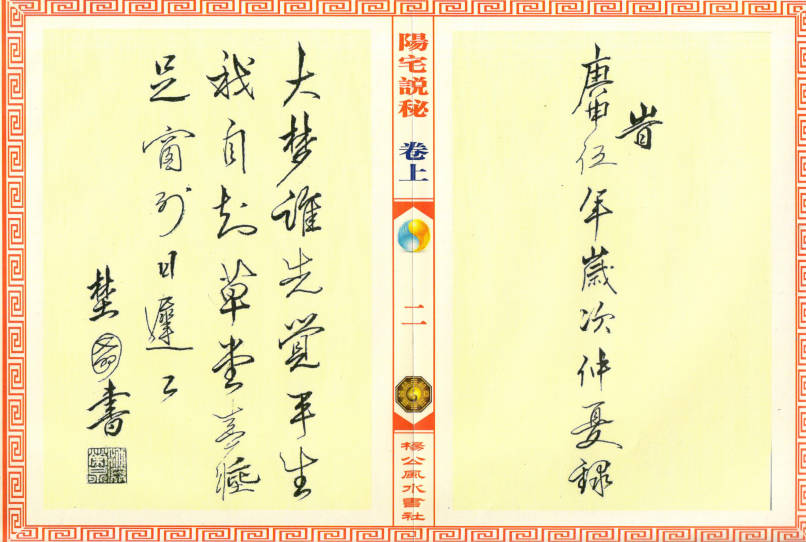 旹
庚申伍年歲次仲夏録
陽宅説秘 卷上
二
楊公風水書社
大梦誰先覺平生
我自知草堂春睡
足窗外日遲〻
書